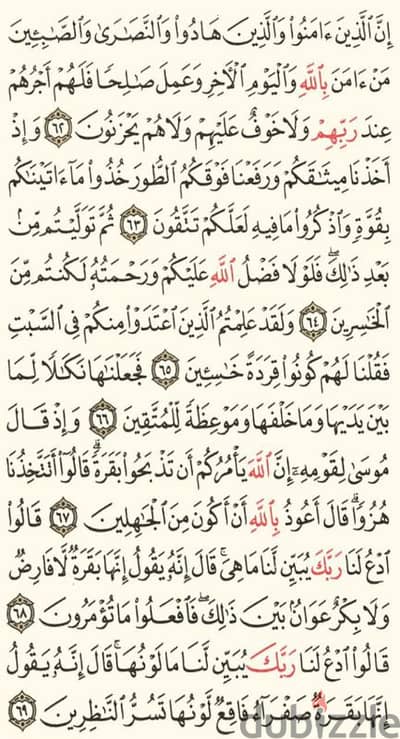 إِنَّ ٱلَّذِينَ ءَامَنُوا۟ وَٱلَّذِينَ هَادُوا۟ وَٱلنَّصَٰرَىٰ وَٱلصَّٰبِـِٔينَ
مَنْ ءَامَنَ بِٱللَّهِ وَٱلْيَوْمِ ٱلْءَاخِرِ وَعَمِلَ صَٰلِحًا فَلَهُمْ أَجْرُهُمْ
عِندَ رَبِّهِمْ وَلَا خَوْفٌ عَلَيْهِمْ وَلَا هُمْ يَحْزَنُونَ ٦٢ وَإِذْ
أَخَذْنَا مِيثَٰقَكُمْ وَرَفَعْنَا فَوْقَكُمُ ٱلطُّورَ خُذُوا۟ مَآ ءَاتَيْنَٰكُم
بِقُوَّةٍ وَٱذْكُرُوا۟ مَا فِيهِ لَعَلَّكُمْ تَتَّقُونَ ٦٣ ثُمَّ تَوَلَّيْتُم مِّنۢ
بَعْدِ ذَٰلِكَ ۖ فَلَوْلَا فَضْلُ ٱللَّهِ عَلَيْكُمْ وَرَحْمَتُهُۥ لَكُنتُم مِّنَ
ٱلْخَٰسِرِينَ ٦٤ وَلَقَدْ عَلِمْتُمُ ٱلَّذِينَ ٱعْتَدَوْا۟ مِنكُمْ فِى ٱلسَّبْتِ
فَقُلْنَا لَهُمْ كُونُوا۟ قِرَدَةً خَٰسِـِٔينَ ٦٥ فَجَعَلْنَٰهَا نَكَٰلًا لِّمَا
بَيْنَ يَدَيْهَا وَمَا خَلْفَهَا وَمَوْعِظَةً لِّلْمُتَّقِينَ ٦٦ وَإِذْ قَالَ
مُوسَىٰ لِقَوْمِهِۦٓ إِنَّ ٱللَّهَ يَأْمُرُكُمْ أَن تَذْبَحُوا۟ بَقَرَةً ۖ قَالُوٓا۟ أَتَتَّخِذُنَا
هُزُوًا ۖ قَالَ أَعُوذُ بِٱللَّهِ أَنْ أَكُونَ مِنَ ٱلْجَٰهِلِينَ ٦٧ قَالُوا۟
ٱدْعُ لَنَا رَبَّكَ يُبَيِّن لَّنَا مَا هِىَ ۚ قَالَ إِنَّهُۥ يَقُولُ إِنَّهَا بَقَرَةٌ لَّا فَارِضٌ
وَلَا بِكْرٌ عَوَانٌۢ بَيْنَ ذَٰلِكَ ۖ فَٱفْعَلُوا۟ مَا تُؤْمَرُونَ ٦٨
قَالُوا۟ ٱدْعُ لَنَا رَبَّكَ يُبَيِّن لَّنَا مَا لَوْنُهَا ۚ قَالَ إِنَّهُۥ يَقُولُ
إِنَّهَا بَقَرَةٌ صَفْرَآءُ فَاقِعٌ لَّوْنُهَا تَسُرُّ ٱلنَّٰظِرِينَ ٦٩
dubizzle